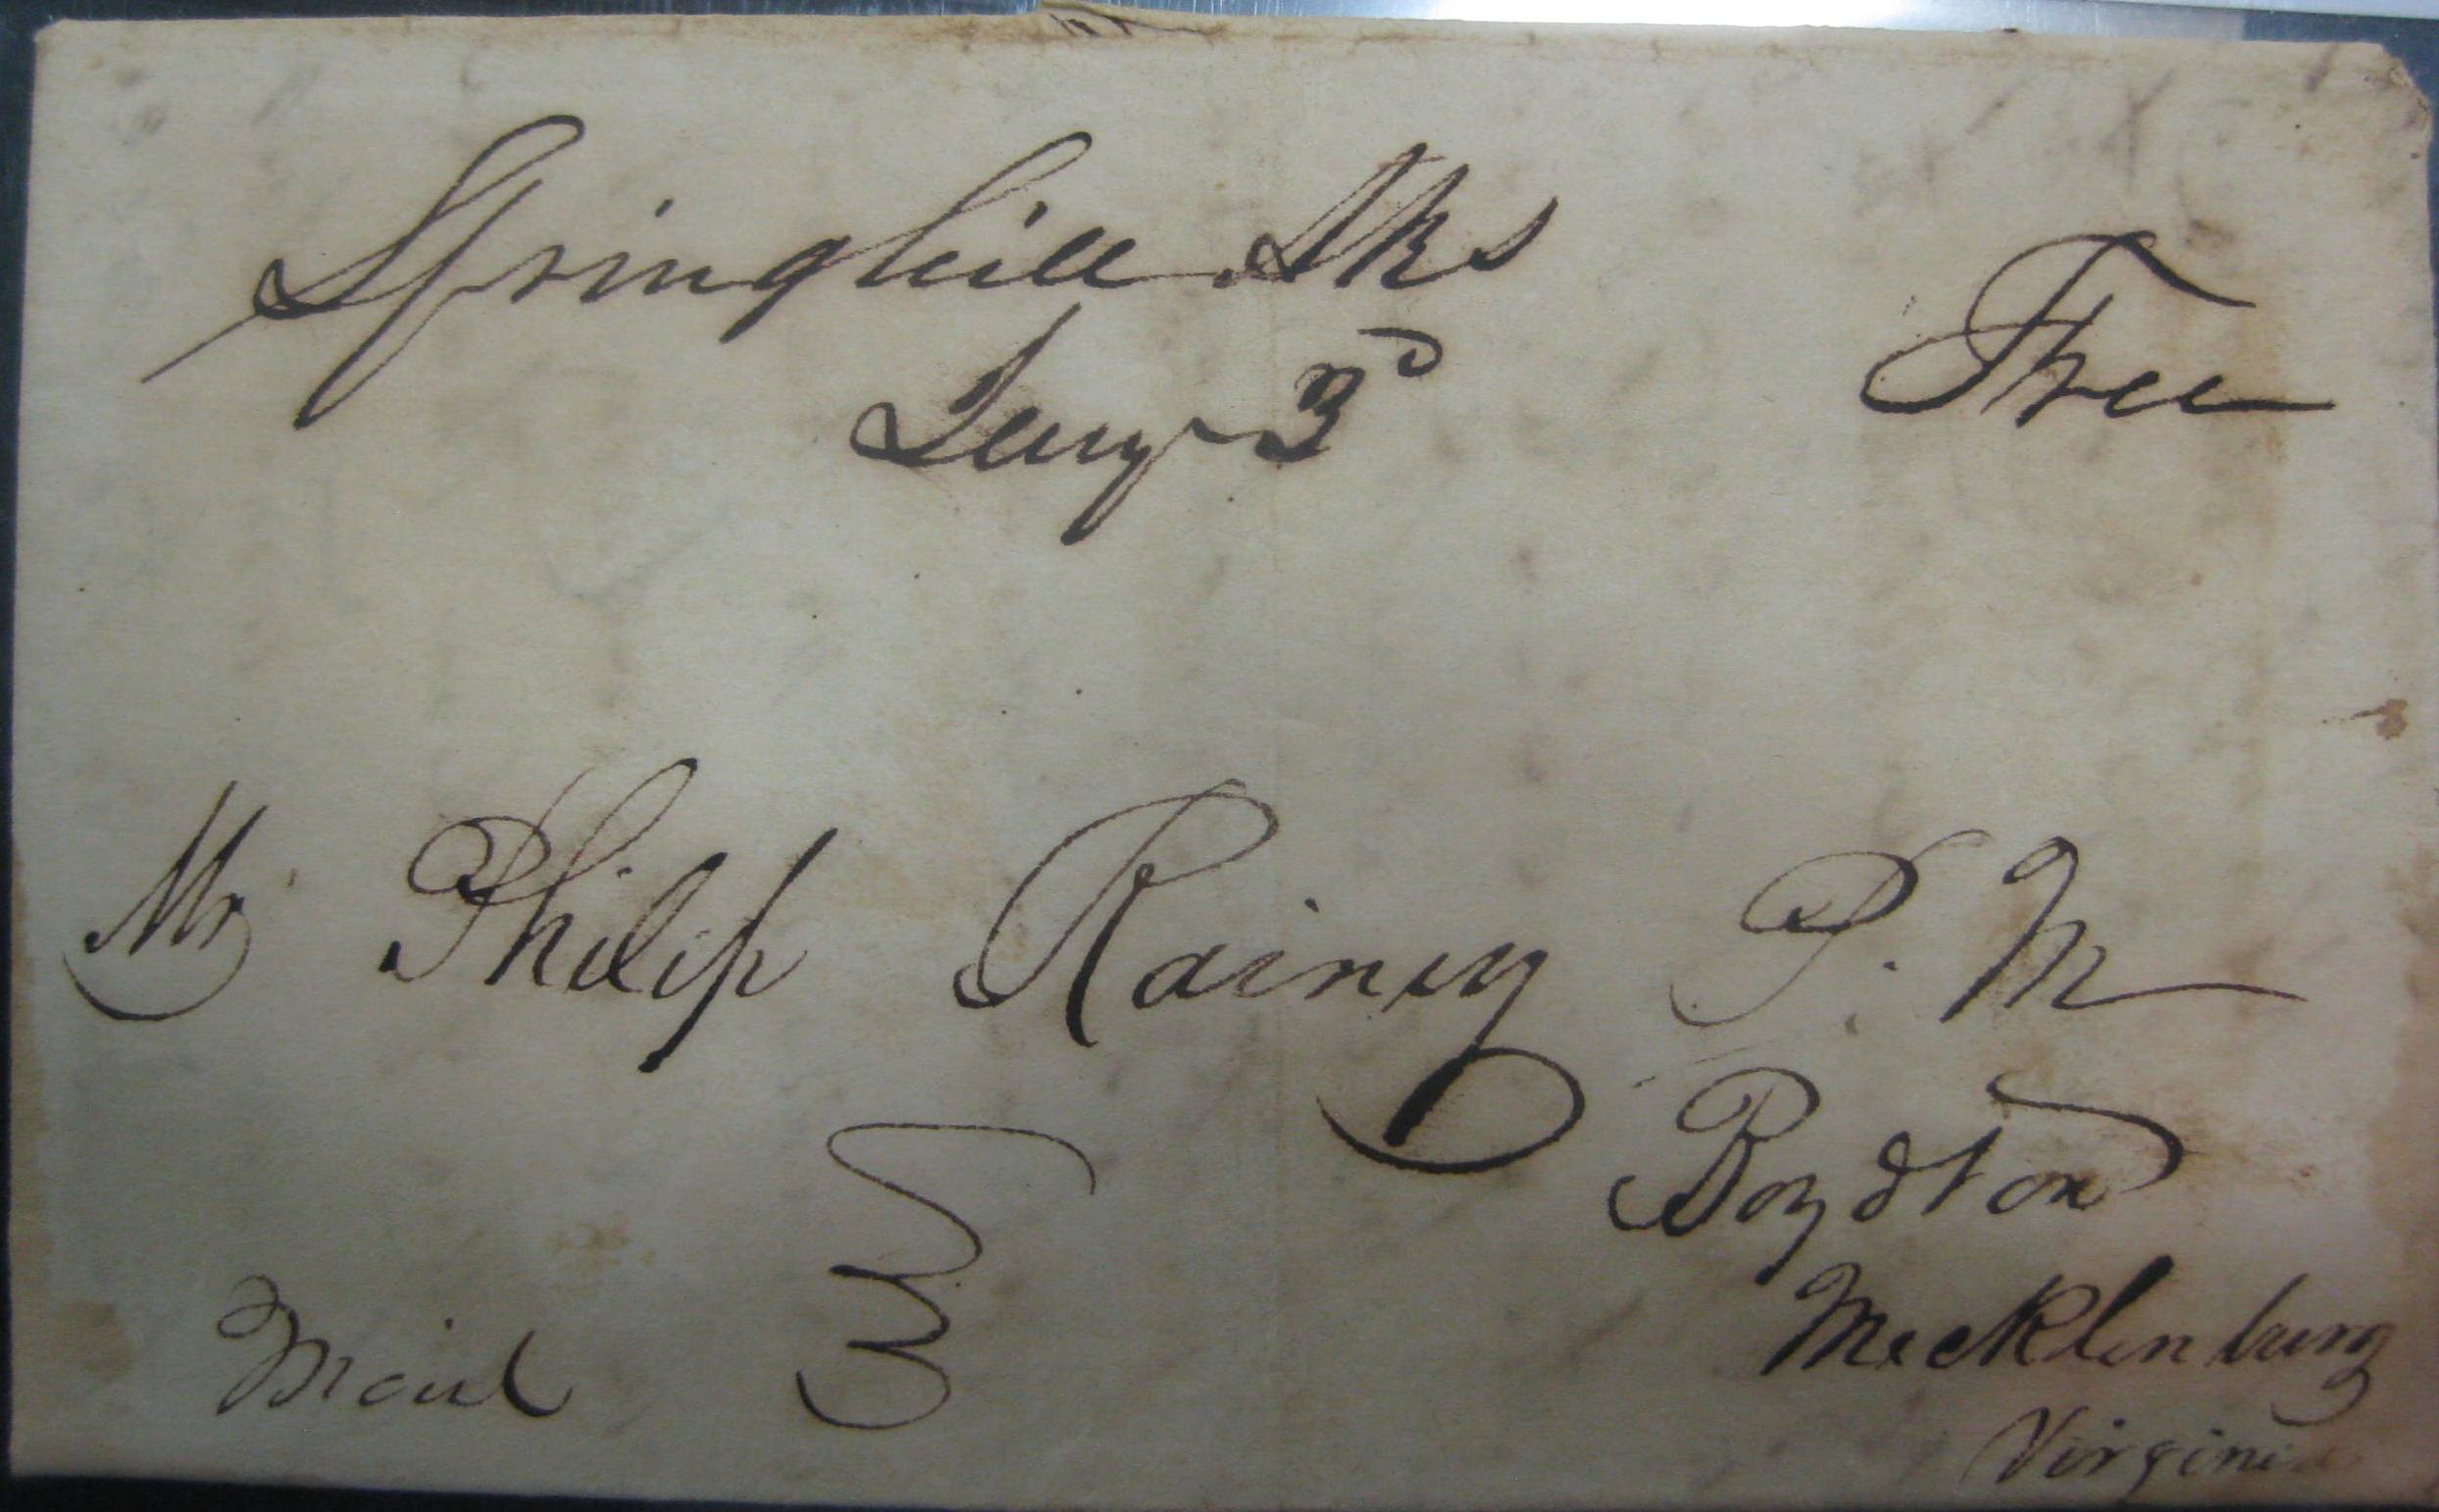 Springhill Aks
Jany 3d
Free
Mr Philip Rainey P. M
Boydton
Mecklenburg
Virginia
Mail